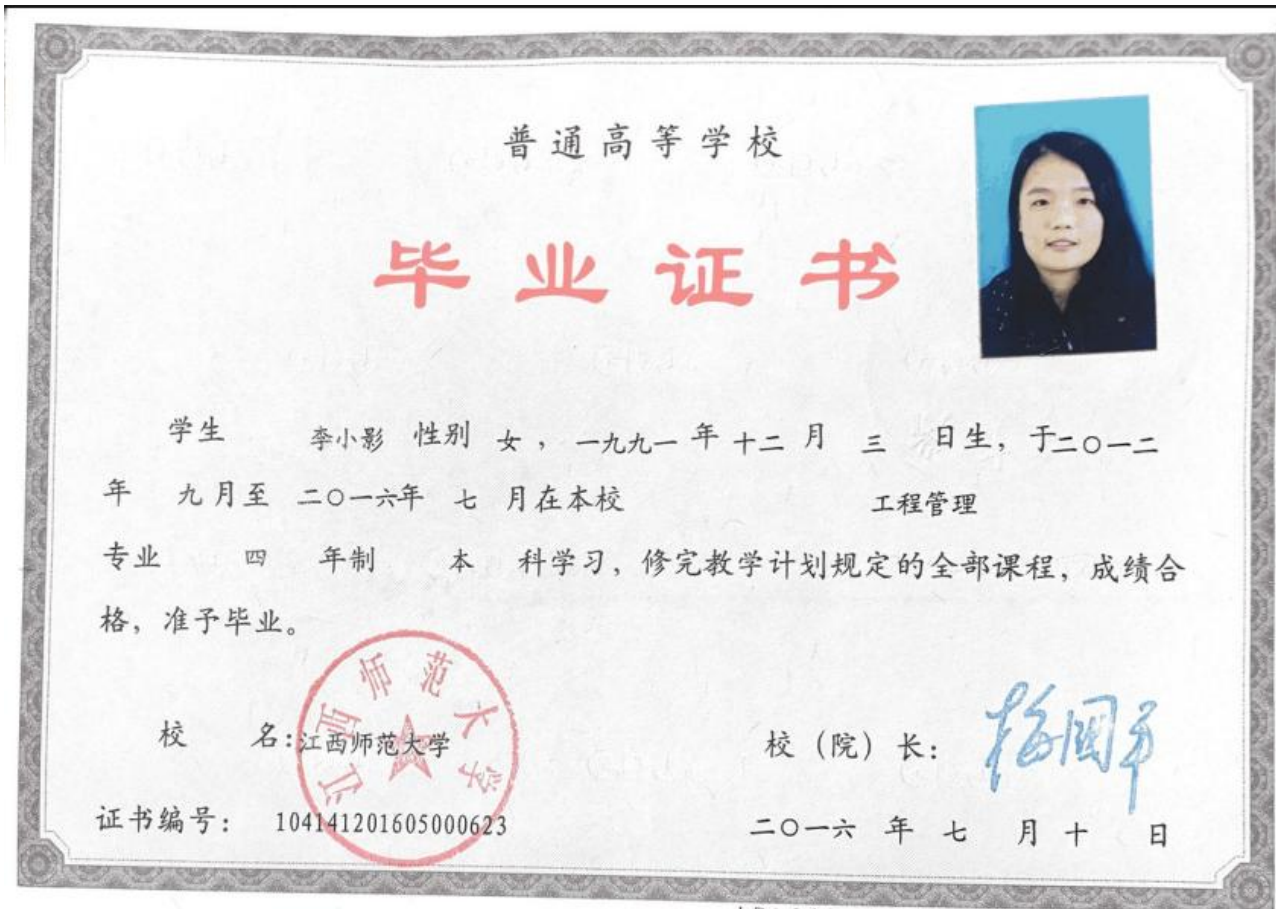 普通高等学校
毕业证书
学生 李小影 性别 女，一九九一 年 十二 月 三 日生，于二〇一二
年 九月至 二〇一六年 七 月在本校 工程管理
专业 四 年制 本 科学习，修完教学计划规定的全部课程，成绩合
格，准予毕业。
江西师范大学
校 名：江西师范大学 校（院）长：梅国平
证书编号： 104141201605000623 二〇一六 年 七 月 十 日